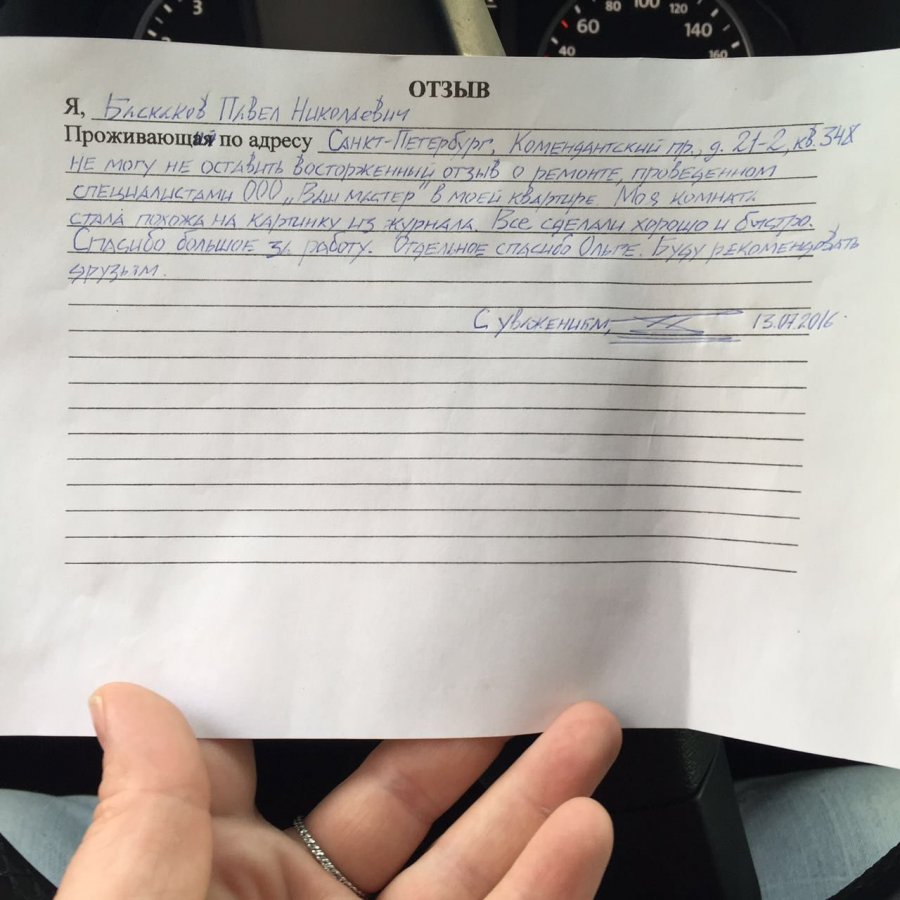 3
2
60
80
100
120
140
40
160
ОТЗЫВ
Я, Баскаков Павел Николаевич
Проживающий по адресу Санкт-Петербург, Комендантский пр., д. 21-2, кв. 348
не могу не оставить восторженный отзыв о ремонте, проведенном
специалистами ООО „Ваш мастер" в моей квартире. Моя комната
стала похожа на картинку из журнала. Все сделали хорошо и быстро.
Спасибо большое за работу. Отдельное спасибо Ольге. Буду рекомендовать
друзьям.
С уважением, 13.07.2016.